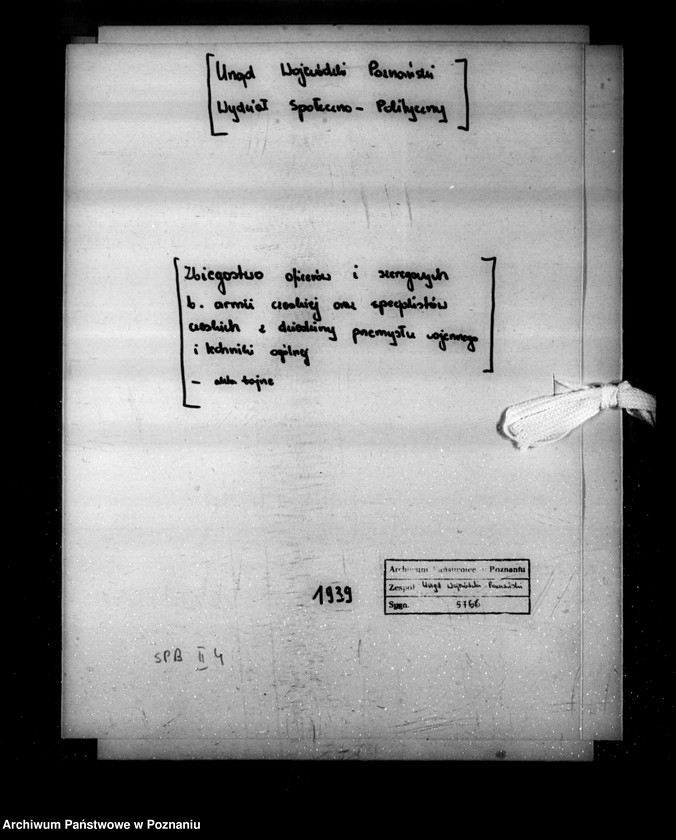 [Urząd Wojewódzki Poznański
Wydział Społeczno - Polityczny]
[Zbiegostwo oficerów i szeregowych
b. armii czeskiej oraz specjalistów
czeskich z dziedziny przemysłu wojennego
i techniki ogólnej
- akta tajne]
1939
Archiwum Państwowe w Poznaniu
Zespół Urząd Wojewódzki Poznański
Sygn. 5766
SPB II 4
Archiwum Państwowe w Poznaniu